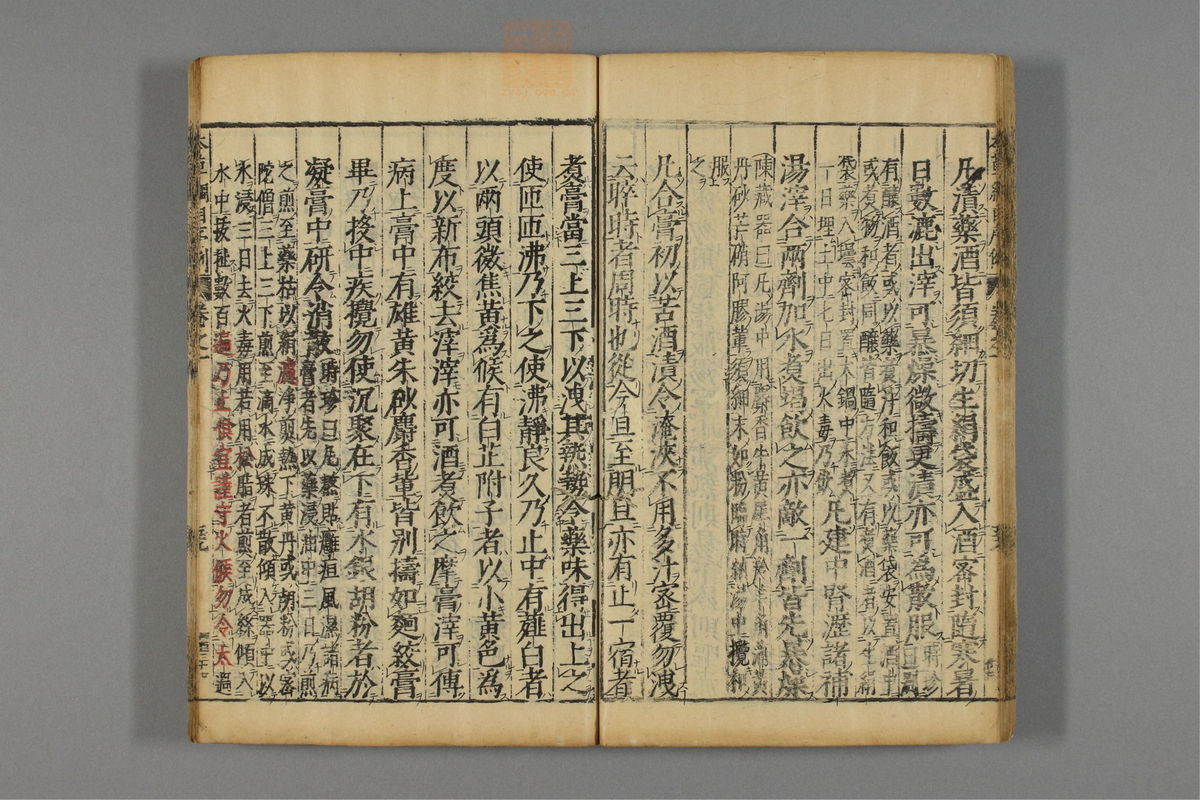 凡漬藥酒皆須細切生絹袋盛入酒密封隨寒暑
日數漉出滓可暴燥微擣更漬亦可為散服 時珍曰
有釀酒者或以藥煮汁和飯或以藥袋安置酒中
或煮物和飯同釀皆隨方法又有煮酒者以生絹
袋藥入罈密封置大鍋中水煮
一日埋土中七日出火毒乃飲 凡建中腎瀝諸補
湯滓合兩劑加水煮竭飲之亦敵一劑皆先暴燥
陳藏器曰凡湯中用麝香牛黃犀角羚羊角蒲黃
丹砂芒硝阿膠輩須細末如粉臨時納湯中攪和
服之
凡合膏初以苦酒漬令淹浹不用多汁密覆勿洩
云晬時者周時也從今旦至明旦亦有止一宿者
煮膏當三上三下以洩其熱勢令藥味得出上之
使匝匝沸乃下之使沸靜良久乃止中有薤白者
以兩頭微焦黃為候有白芷附子者以小黃色為
度以新布絞去滓滓亦可酒煮飲之摩膏滓可傅
病上膏中有雄黃朱砂麝香輩皆別擣如麵絞膏
畢乃投中疾攪勿使沉聚在下有水銀胡粉者於
凝膏中研令消散 時珍曰凡熬貼癰疽風濕諸病
膏者先以藥浸油中三日乃煎
之煎至藥枯以絹濾淨煎熱下黃丹或胡粉或密
陀僧三上三下煎至滴水成珠不散傾入器中以
水浸三日去火毒用若用松脂者煎至成絲傾入
水中拔扯數百遍乃止俱宜謹守火候勿令太過